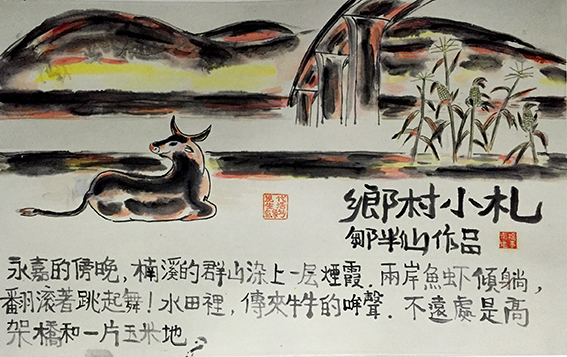 鄉村小札
鄒半仙作品
永嘉的傍晚，楠溪的群山染上一层煙霞．兩岸魚虾傾躺，
翻滾著跳起舞！水田裡，傳來牛牛的哞聲．不遠處是高
架橋和一片玉米地。